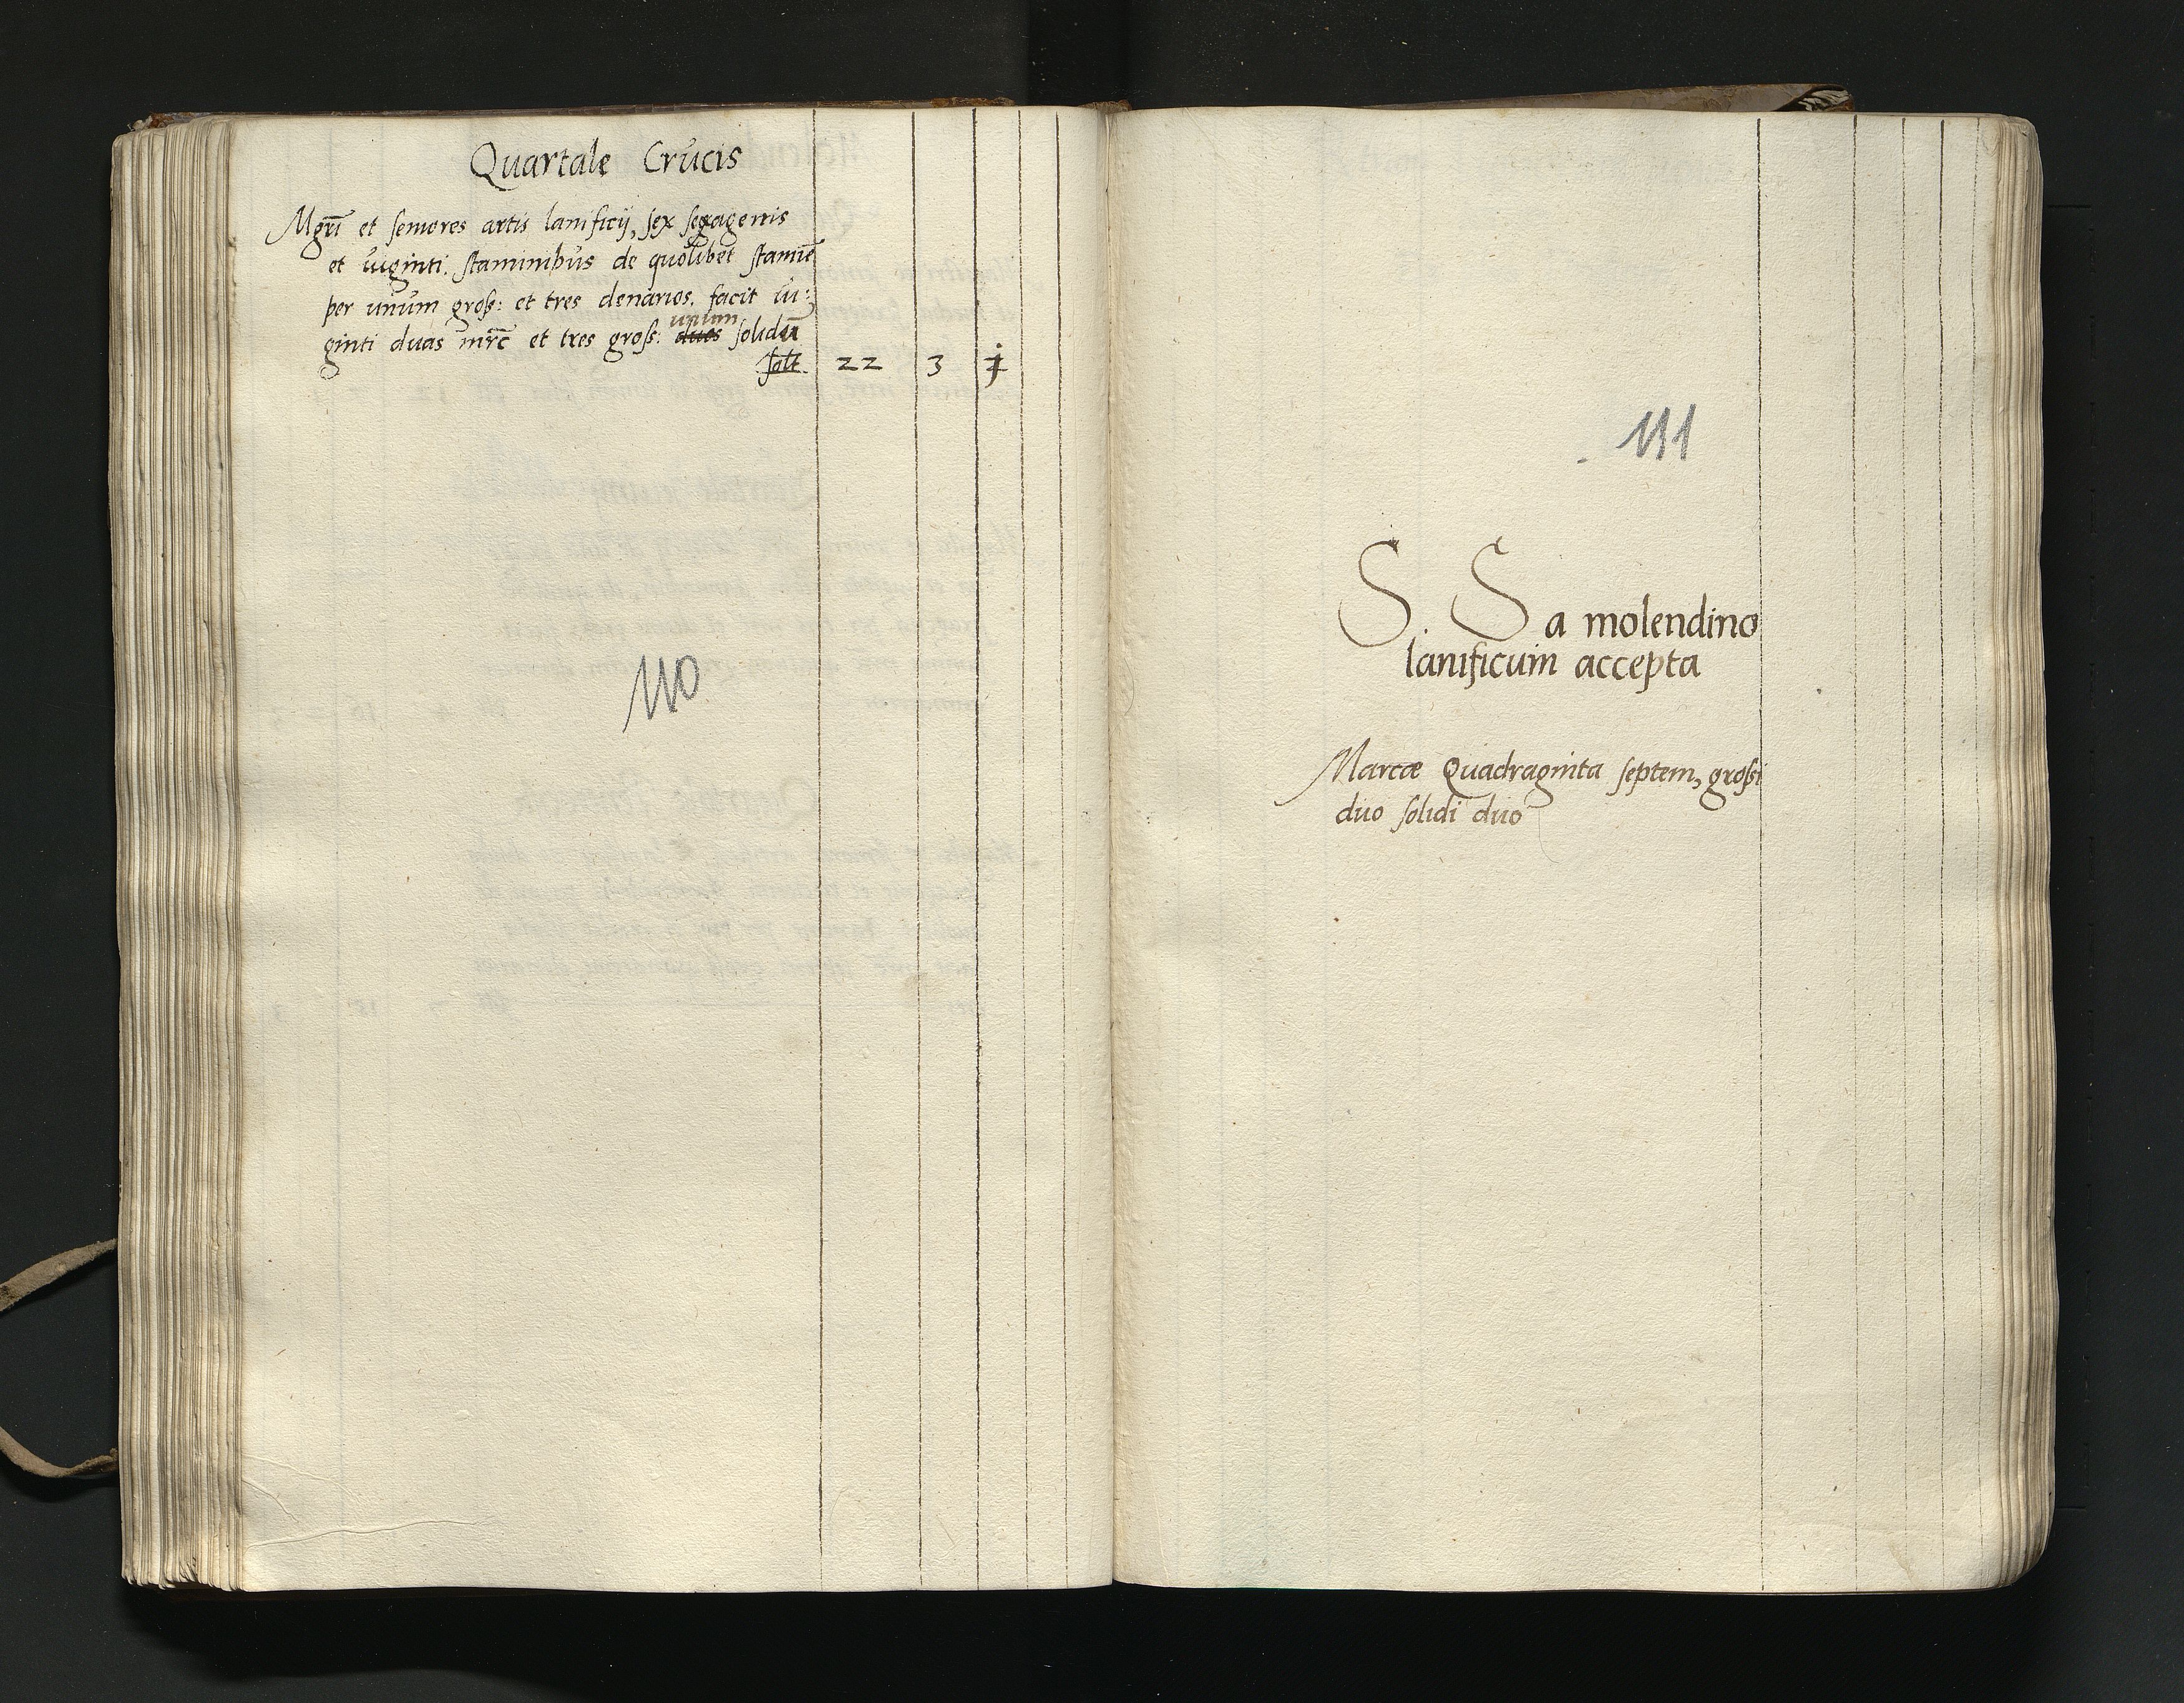 Quartale Crucis
Mgrī et seniores artis lanificij, sex sexagenis
et viginti staminibus de quolibet stamīe
per unum gross: et tres denarios. facit vi:
ginti duas mrc̄ et tres gross: unum solidū
fa͞t 22 3 j
110
111
S. S a molendino
lanificum accepta
Marcæ Quadraginta septem, grossi
duo solidi duo